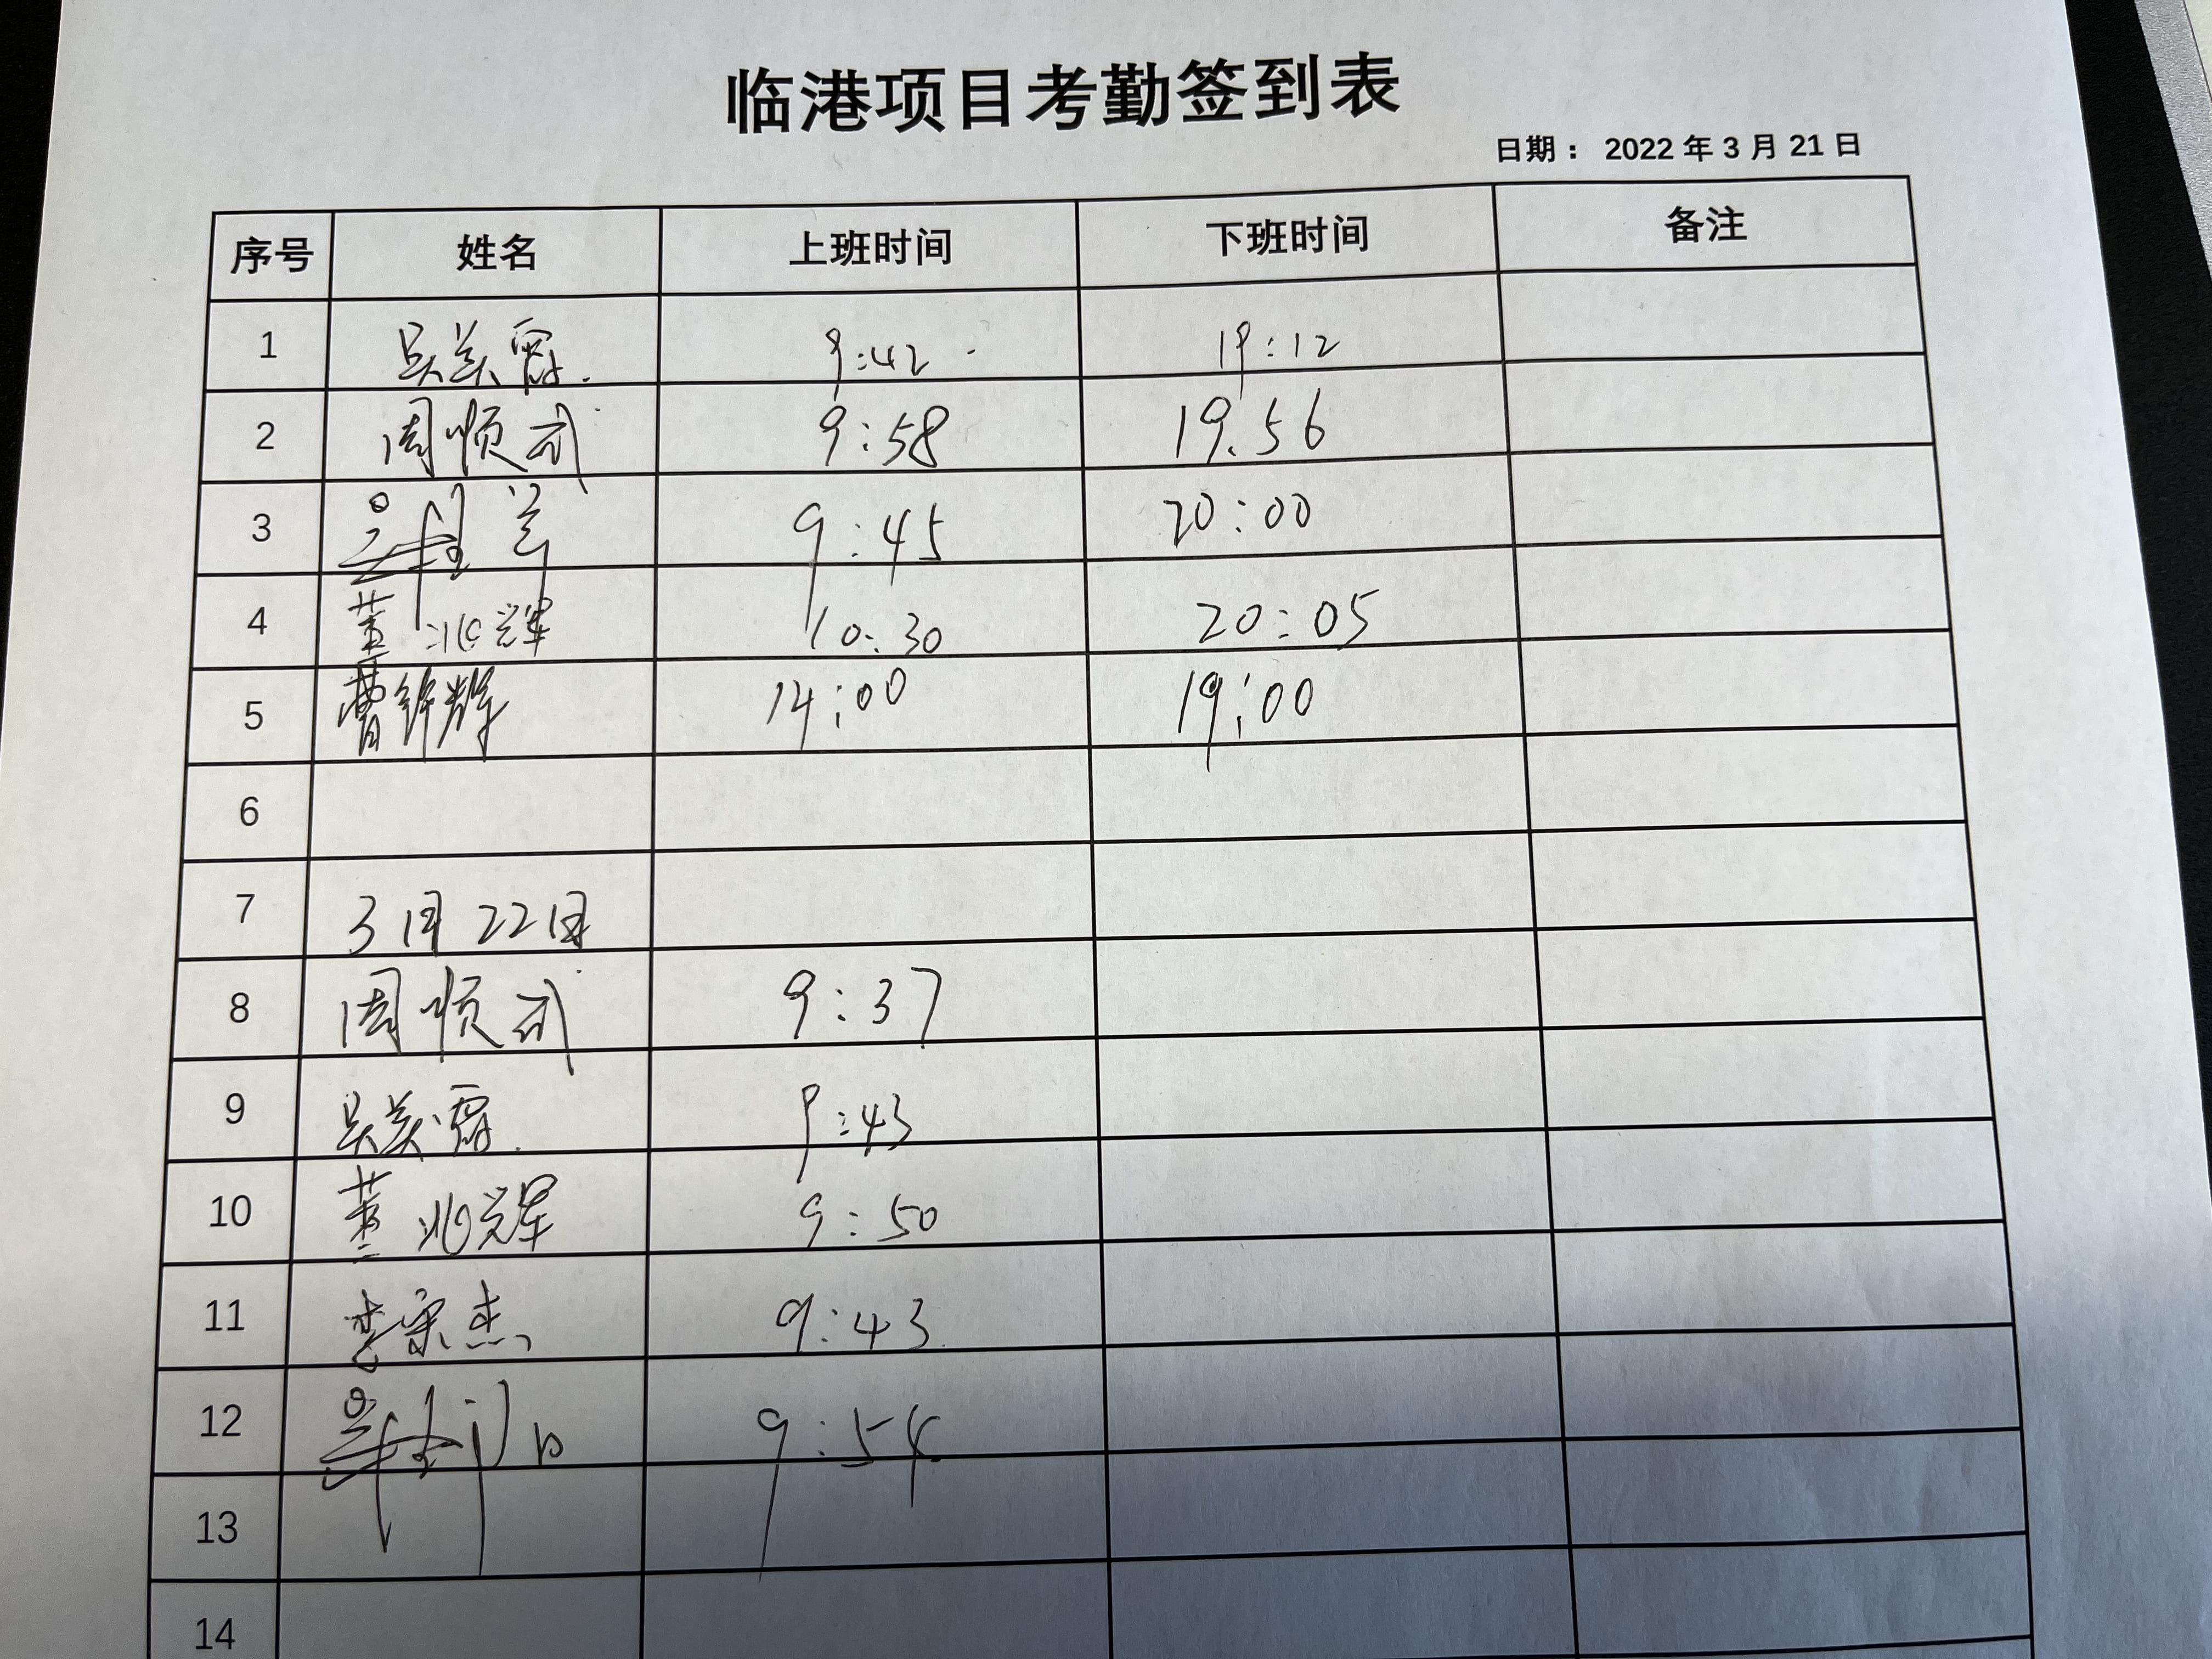 临港项目考勤签到表
日期： 2022 年 3 月 21 日
序号 姓名 上班时间 下班时间 备注
1 吴美霞. 9:42 19:12
2 周顺武 9:58 19.56
3 9:45 20:00
4 董兆辉 10:30 20:05
5 曹锦辉 14:00 19:00
6
7 3月22日
8 周顺武 9:37
9 吴美霞. 9:43
10 董兆辉 9:50
11 李宗杰 9:43
12 9:54
13
14